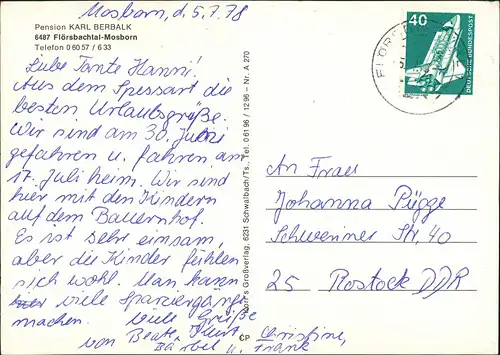 Mosborn, d. 5.7.78
Pension KARL BERBALK
6487 Flörsbachtal-Mosborn
Telefon 0 60 57 / 6 33
Liebe Tante Hanni!
Aus dem Spessart die
besten Urlaubsgrüße.
Wir sind am 30. Juni
gefahren u. fahren am
17. Juli heim. Wir sind
hier mit den Kindern
auf dem Bauernhof.
Es ist sehr einsam,
aber die Kinder fühlen
sich wohl. Man kann
viele Spaziergänge
machen. Viele Grüße
von Beate, Kurt,
Bärbel u.
Christine,
Frank
Großverlag, 6231 Schwalbach/Ts., Tel. 0 61 96 / 12 96 – Nr. A 270
CP
40
DEUTSCHE BUNDESPOST
An Frau
Johanna Pügge
Schweriner Str. 40
25 Rostock DDR